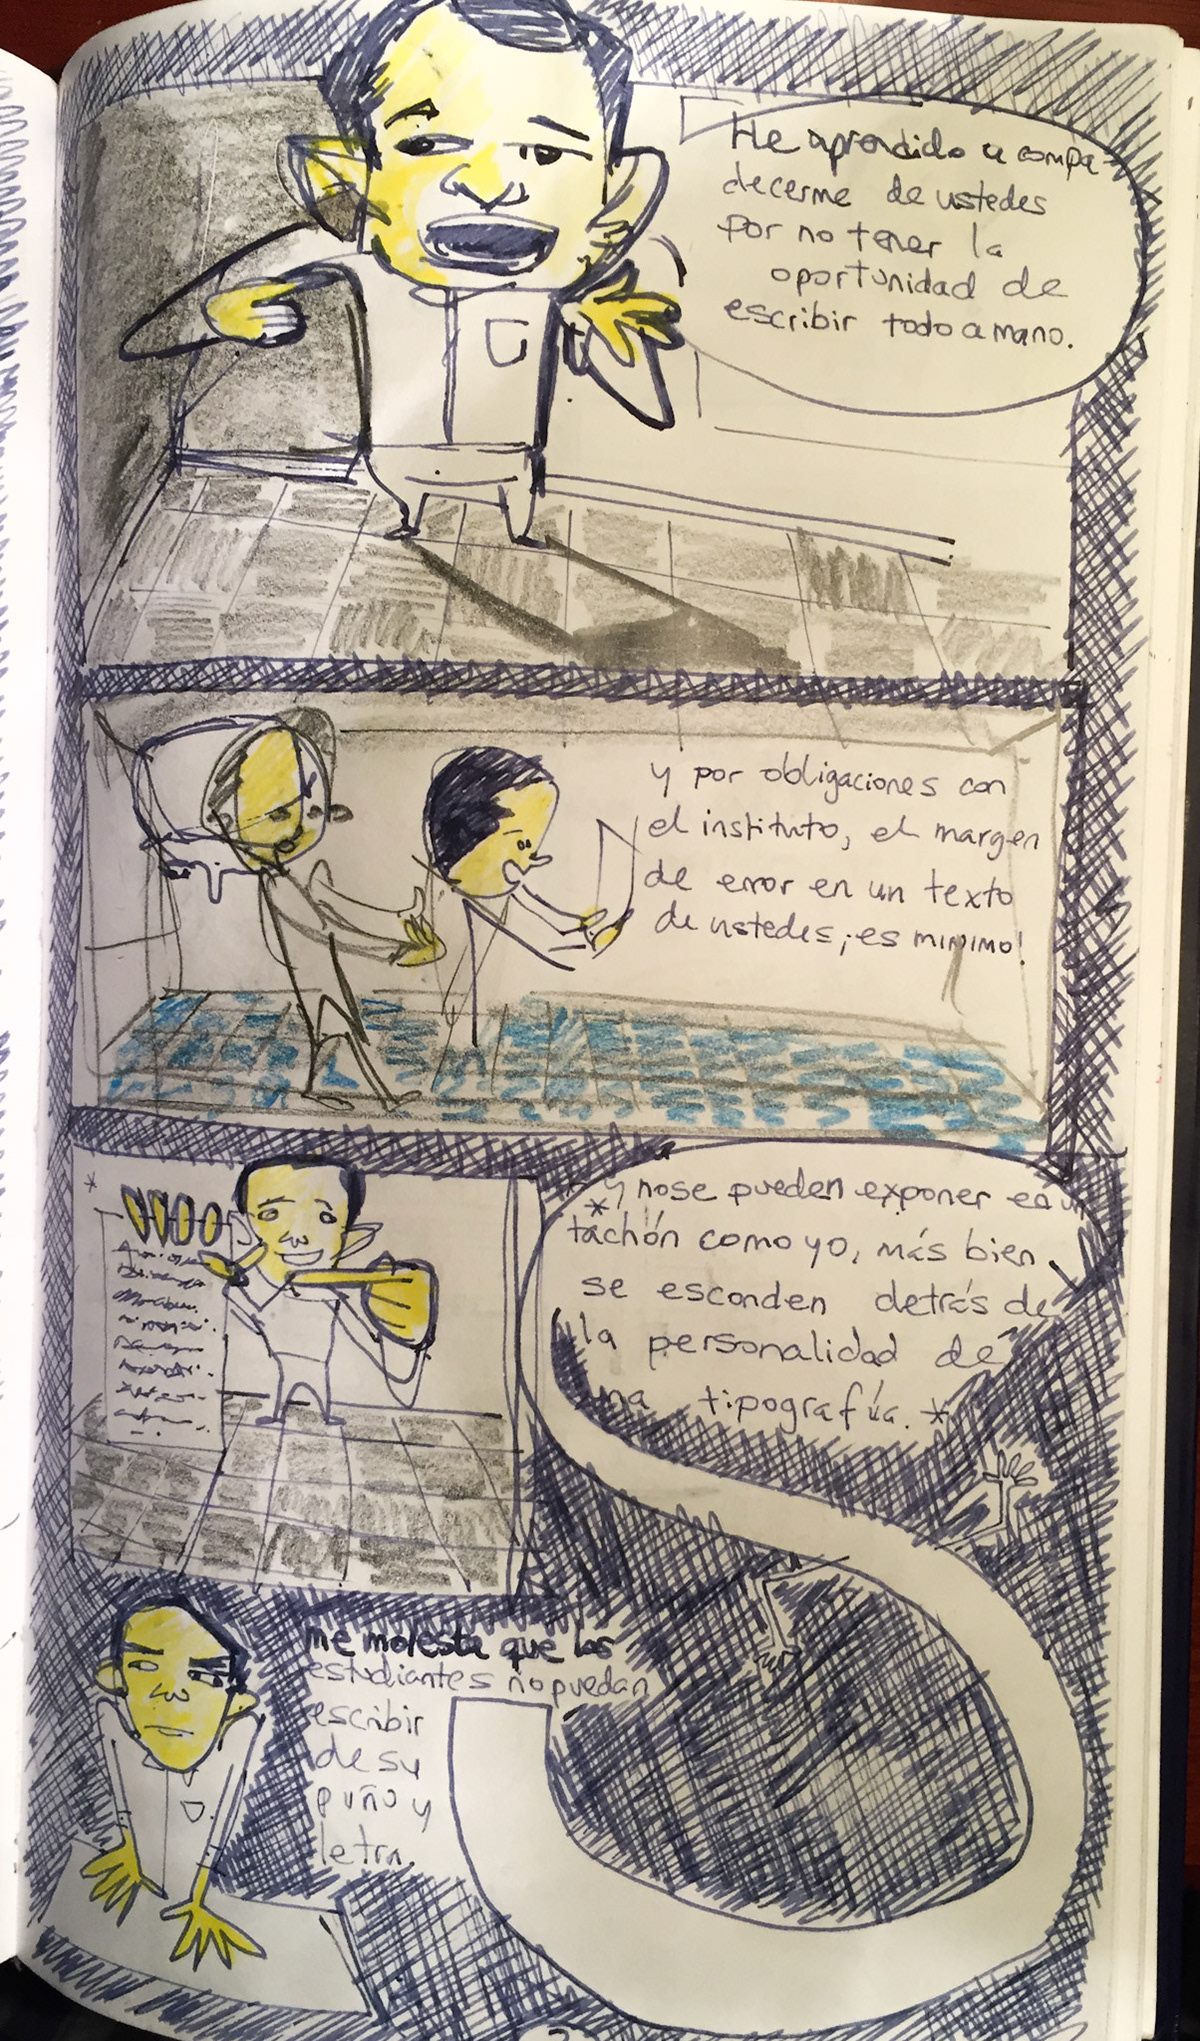 He aprendido a compa-
decerme de ustedes
por no tener la
oportunidad de
escribir todo a mano.
y por obligaciones con
el instituto, el margen
de error en un texto
de ustedes, ¡es MINIMO!
*
* y nose pueden exponer en un
tachón como yo, más bien
se esconden detrás de
la personalidad de
una tipografía. *
me molesta que los
estudiantes no puedan
escribir
de su
puño y
letra.